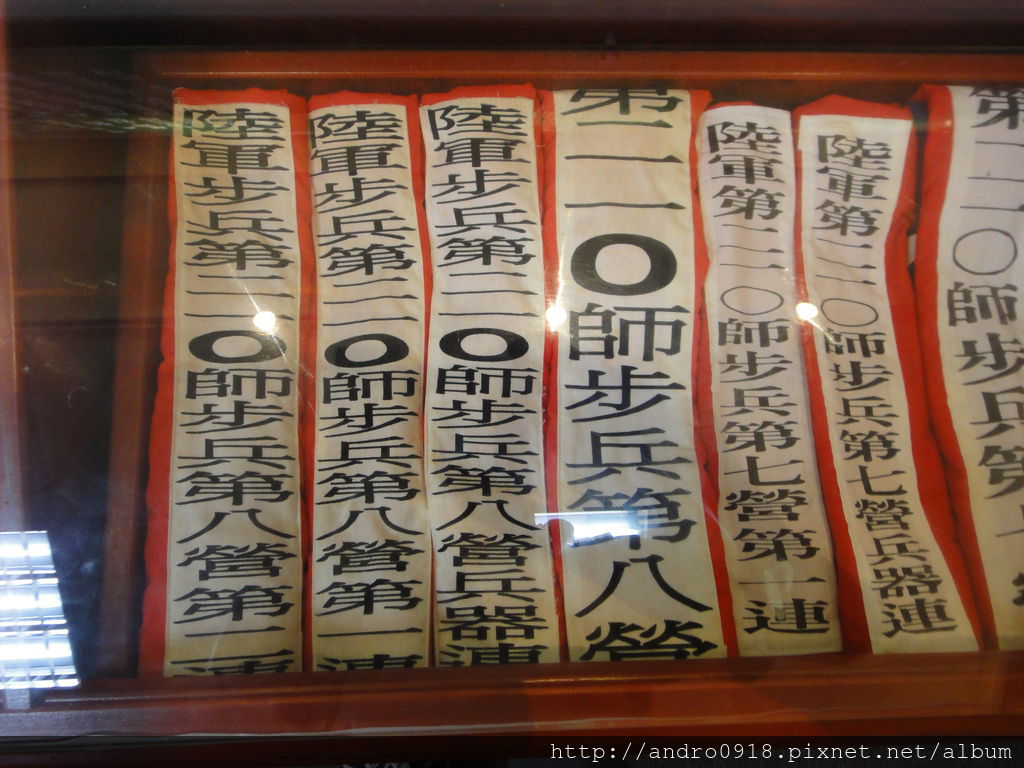 第二一〇師步兵第
陸軍第二一〇師步兵第七營兵器連
陸軍第二一〇師步兵第七營第一連
第二一〇師步兵第八營
陸軍步兵第二一〇師步兵第八營兵器連
陸軍步兵第二一〇師步兵第八營第一連
陸軍步兵第二一〇師步兵第八營第二連
http://andro0918.pixnet.net/album